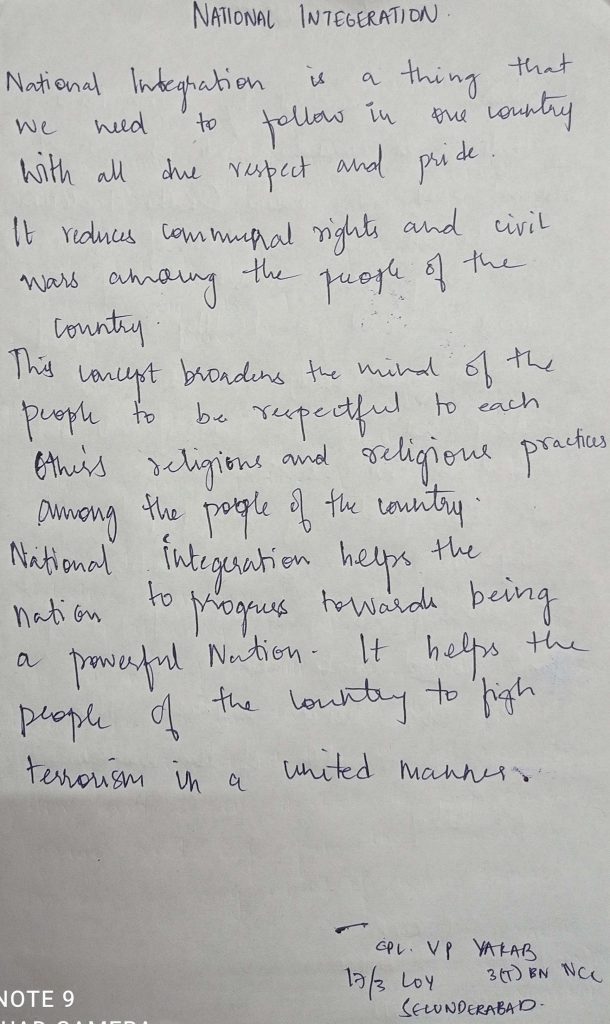 NATIONAL INTEGERATION.
National Integration is a thing that
we need to follow in our country
with all due respect and pride.
It reduces communal rights and civil
wars amoung the people of the
country.
This concept broadens the mind of the
people to be respectful to each
other's religions and religious practices
among the people of the country.
National integeration helps the
nation to progress towards being
a powerful Nation. It helps the
people of the country to figh
terrorism in a united manner.
CPL. VP YARAB
17/3 COY 3(T) BN NCC
SECUNDERABAD.
NOTE 9